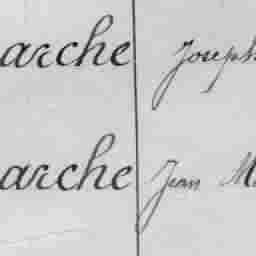 arche Joseph
arche Jean M